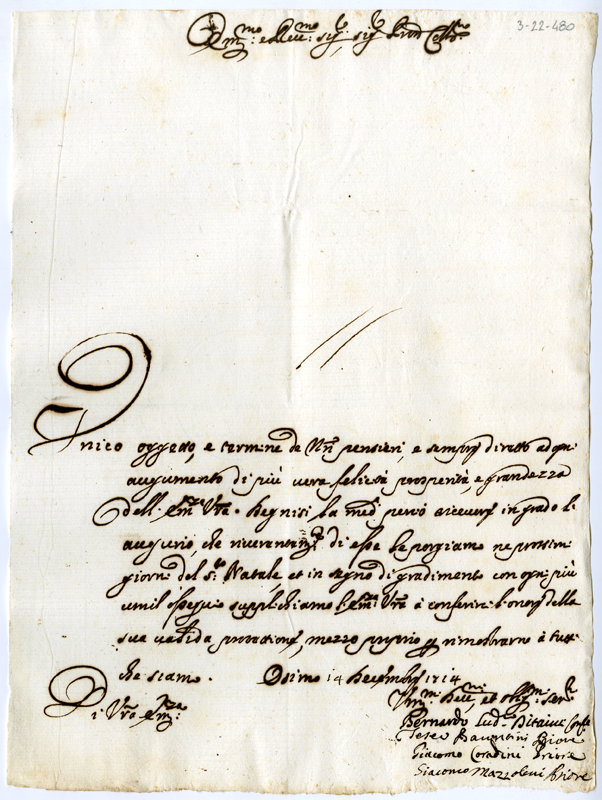 3-22-480
Em.mo e Rev.mo Sig.r Sig.r Pron Coll.mo
Unico oggetto, e termine de Nri pensieri, e sempre diretto ad ogni
augumento di più vera felicità prosperità, e grandezza
dell' Em.za Vra. Degnisi la med. perciò ricevere in grado l'
augurio, che riverentem.te di esse le porgiamo ne prossimi
giorni del S.to Natale, et in segno di gradimento con ogni più
umil ossequio supplichiamo l'Em.za Vra à conferire l'onore della
sua valida protezione, mezzo proprio p rimostrarne à tutti
che siamo. Osimo 14 Decembre 1714
Di Vra Em.za
Um.mi Dev.mi et Obl.mi Ser.ri
Bernardo Lud.
Priore
Giacomo Coradini Priore
Giacomo Mazzoleni Priore